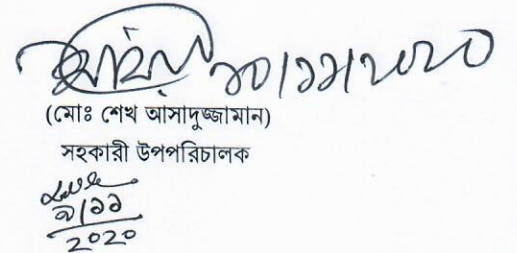 ১০/১১/২০২০
(মোঃ শেখ আসাদুজ্জামান)
সহকারী উপপরিচালক
৯/১১
২০২০